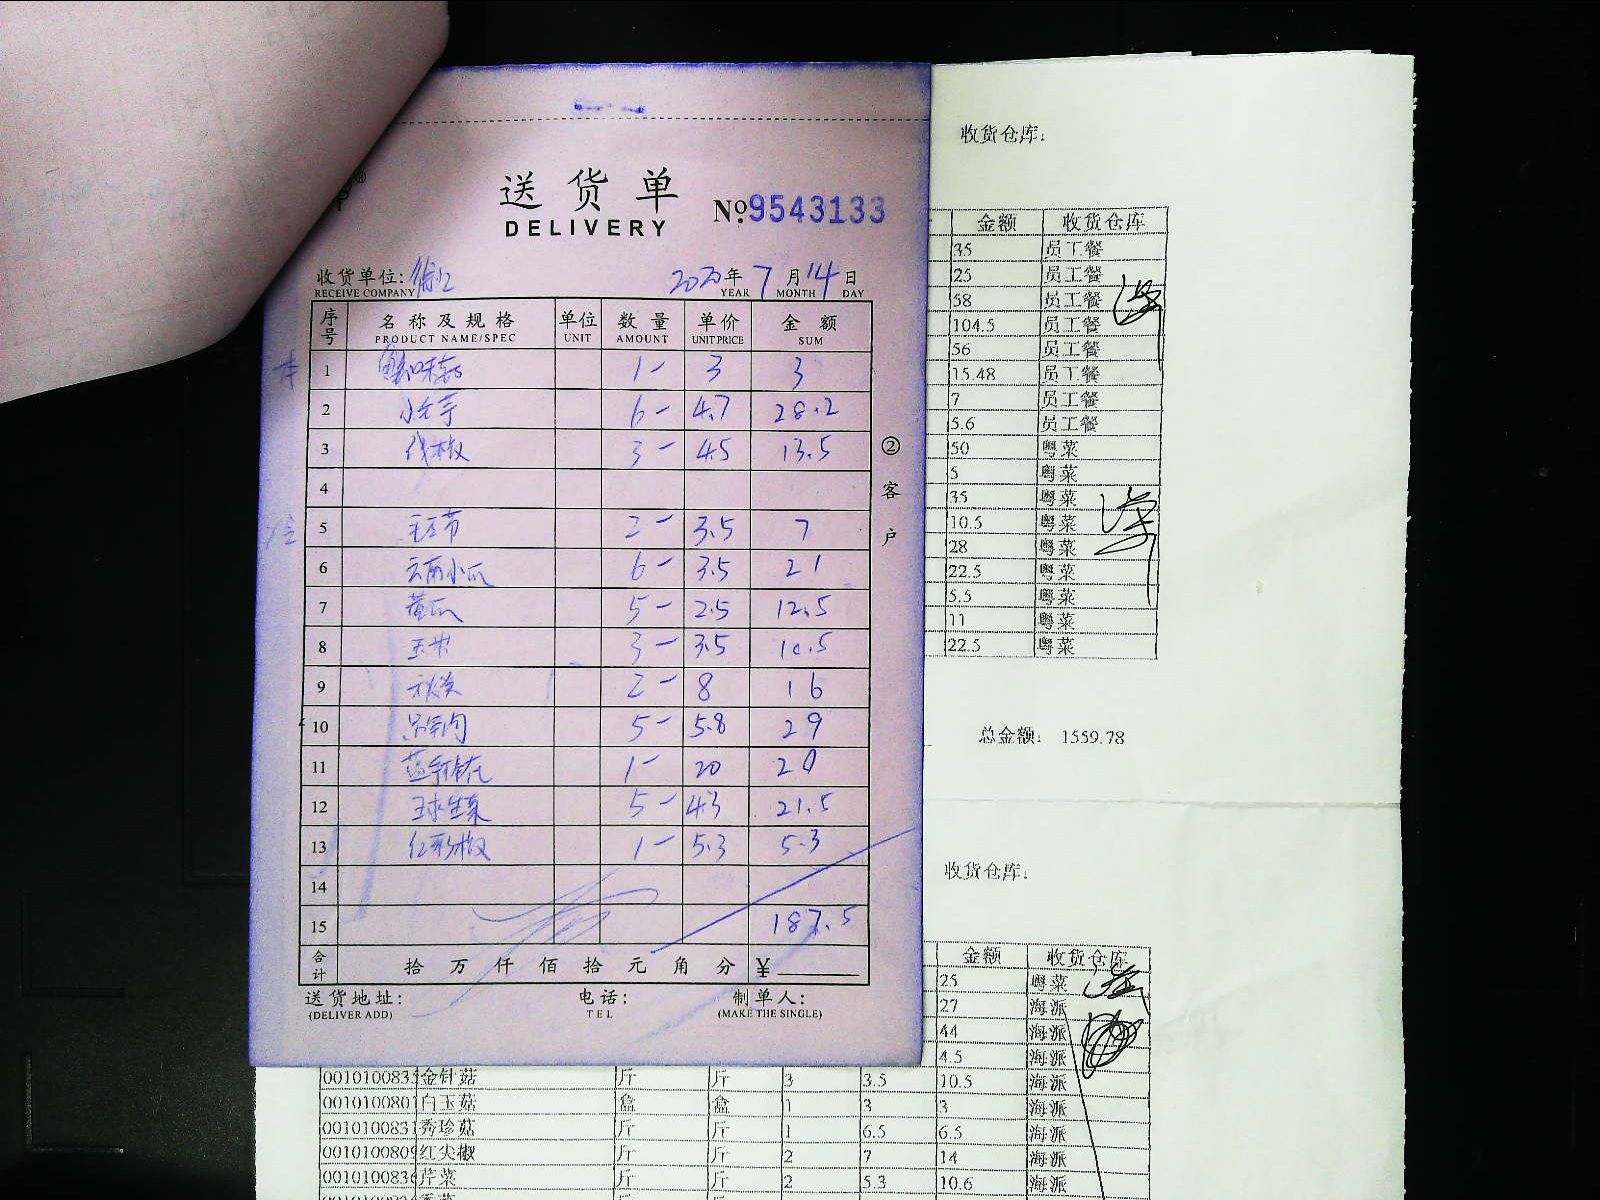 送货单
DELIVERY
No. 9543133
收货单位: 徐汇 2020年 7月 14日
RECEIVE COMPANY YEAR MONTH DAY
序号 名称及规格 单位 数量 单价 金额
PRODUCT NAME/SPEC UNIT AMOUNT UNIT PRICE SUM
1 蟹味菇 1- 3 3
2 小元芋 6- 4.7 28.2
3 3- 4.5 13.5
4
5 2- 3.5 7
6 云南小瓜 6- 3.5 21
7 黄瓜 5- 2.5 12.5
8 3- 3.5 10.5
9 秋葵 2- 8 16
10 5- 5.8 29
11 1- 20 20
12 球生菜 5- 4.3 21.5
13 红彩椒 1- 5.3 5.3
14
15 187.5
合计 拾 万 仟 佰 拾 元 角 分 ¥
送货地址: 电话: 制单人:
(DELIVER ADD) TEL (MAKE THE SINGLE)
②客户
收货仓库:
金额 收货仓库
35 员工餐
25 员工餐
58 员工餐
104.5 员工餐
56 员工餐
15.48 员工餐
7 员工餐
5.6 员工餐
50 粤菜
5 粤菜
35 粤菜
10.5 粤菜
28 粤菜
22.5 粤菜
5.5 粤菜
11 粤菜
22.5 粤菜
总金额: 1559.78
收货仓库:
金额 收货仓库
25 粤菜
27 海派
44 海派
4.5 海派
0010100835 金针菇 斤 斤 3 3.5 10.5 海派
0010100801 白玉菇 盒 盒 1 3 3 海派
0010100831 秀珍菇 斤 斤 1 6.5 6.5 海派
0010100809 红尖椒 斤 斤 2 7 14 海派
0010100836 芹菜 斤 斤 2 5.3 10.6 海派